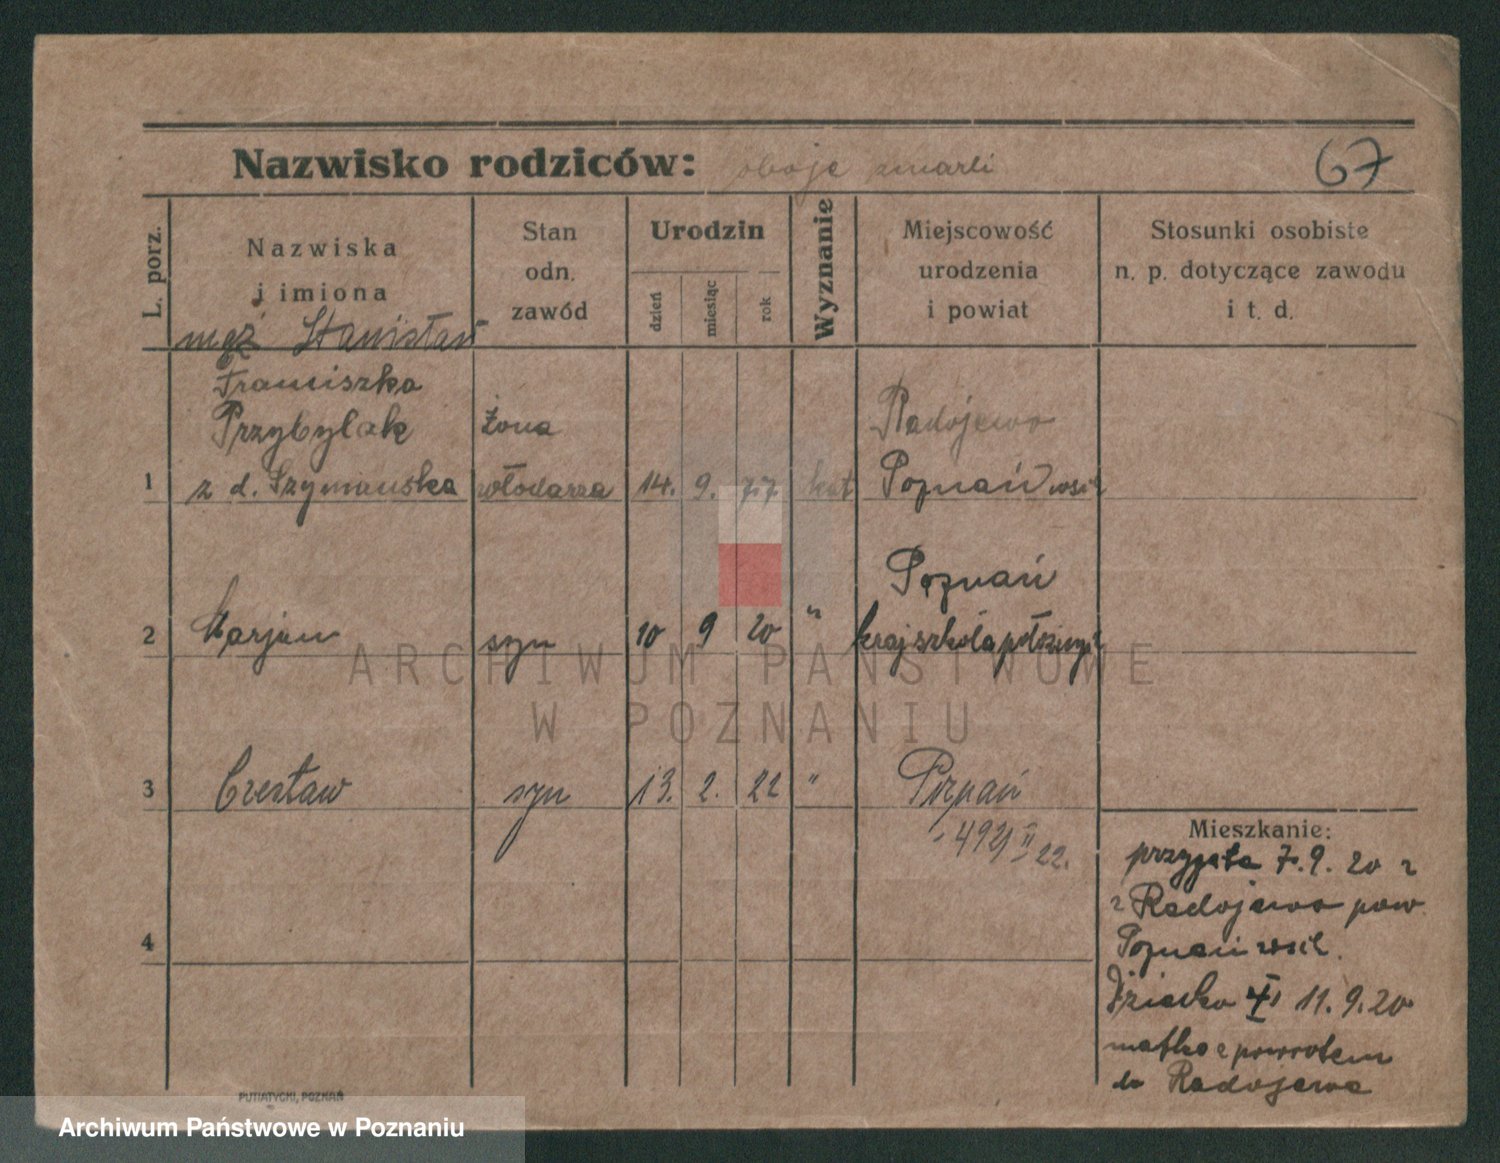 Nazwisko rodziców: oboje zmarli
67
L. porz.
Nazwiska
i imiona
Stan
odn.
zawód
Urodzin
dzień
miesiąc
rok
Wyznanie
Miejscowość
urodzenia
i powiat
Stosunki osobiste
n. p. dotyczące zawodu
i t. d.
mąż Stanisław
Franciszka
Przybylak
z d. Szymańska
1
żona
włodarza
14. 9. 77 kat
Radojewo
Poznań wsch
2 Marjan syn 10 9 20 "
Poznań
kraj szkoła położnych
3 Czesław syn 13. 2. 22 " Poznań
492 II 22.
4
Mieszkanie:
przyjęta 7.9. 20 z
z Radojewo pow
Poznań wsch.
Dziecko 11.9.20
matka z powrotem
do Radojewa
PUTIATYCKI, POZNAŃ
ARCHIWUM PAŃSTWOWE
W POZNANIU
Archiwum Państwowe w Poznaniu